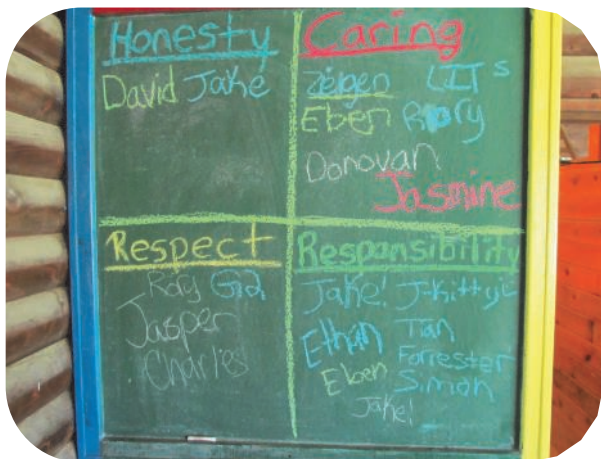 Honesty
David Jake
Caring
LIT s
Eben Rory
Donovan
Jasmine
Respect
Rory
Jasper
Charlies
Responsibility
Jake! J-Kitty
Ethan Tian
Forrester
Eben Simon
Jake!